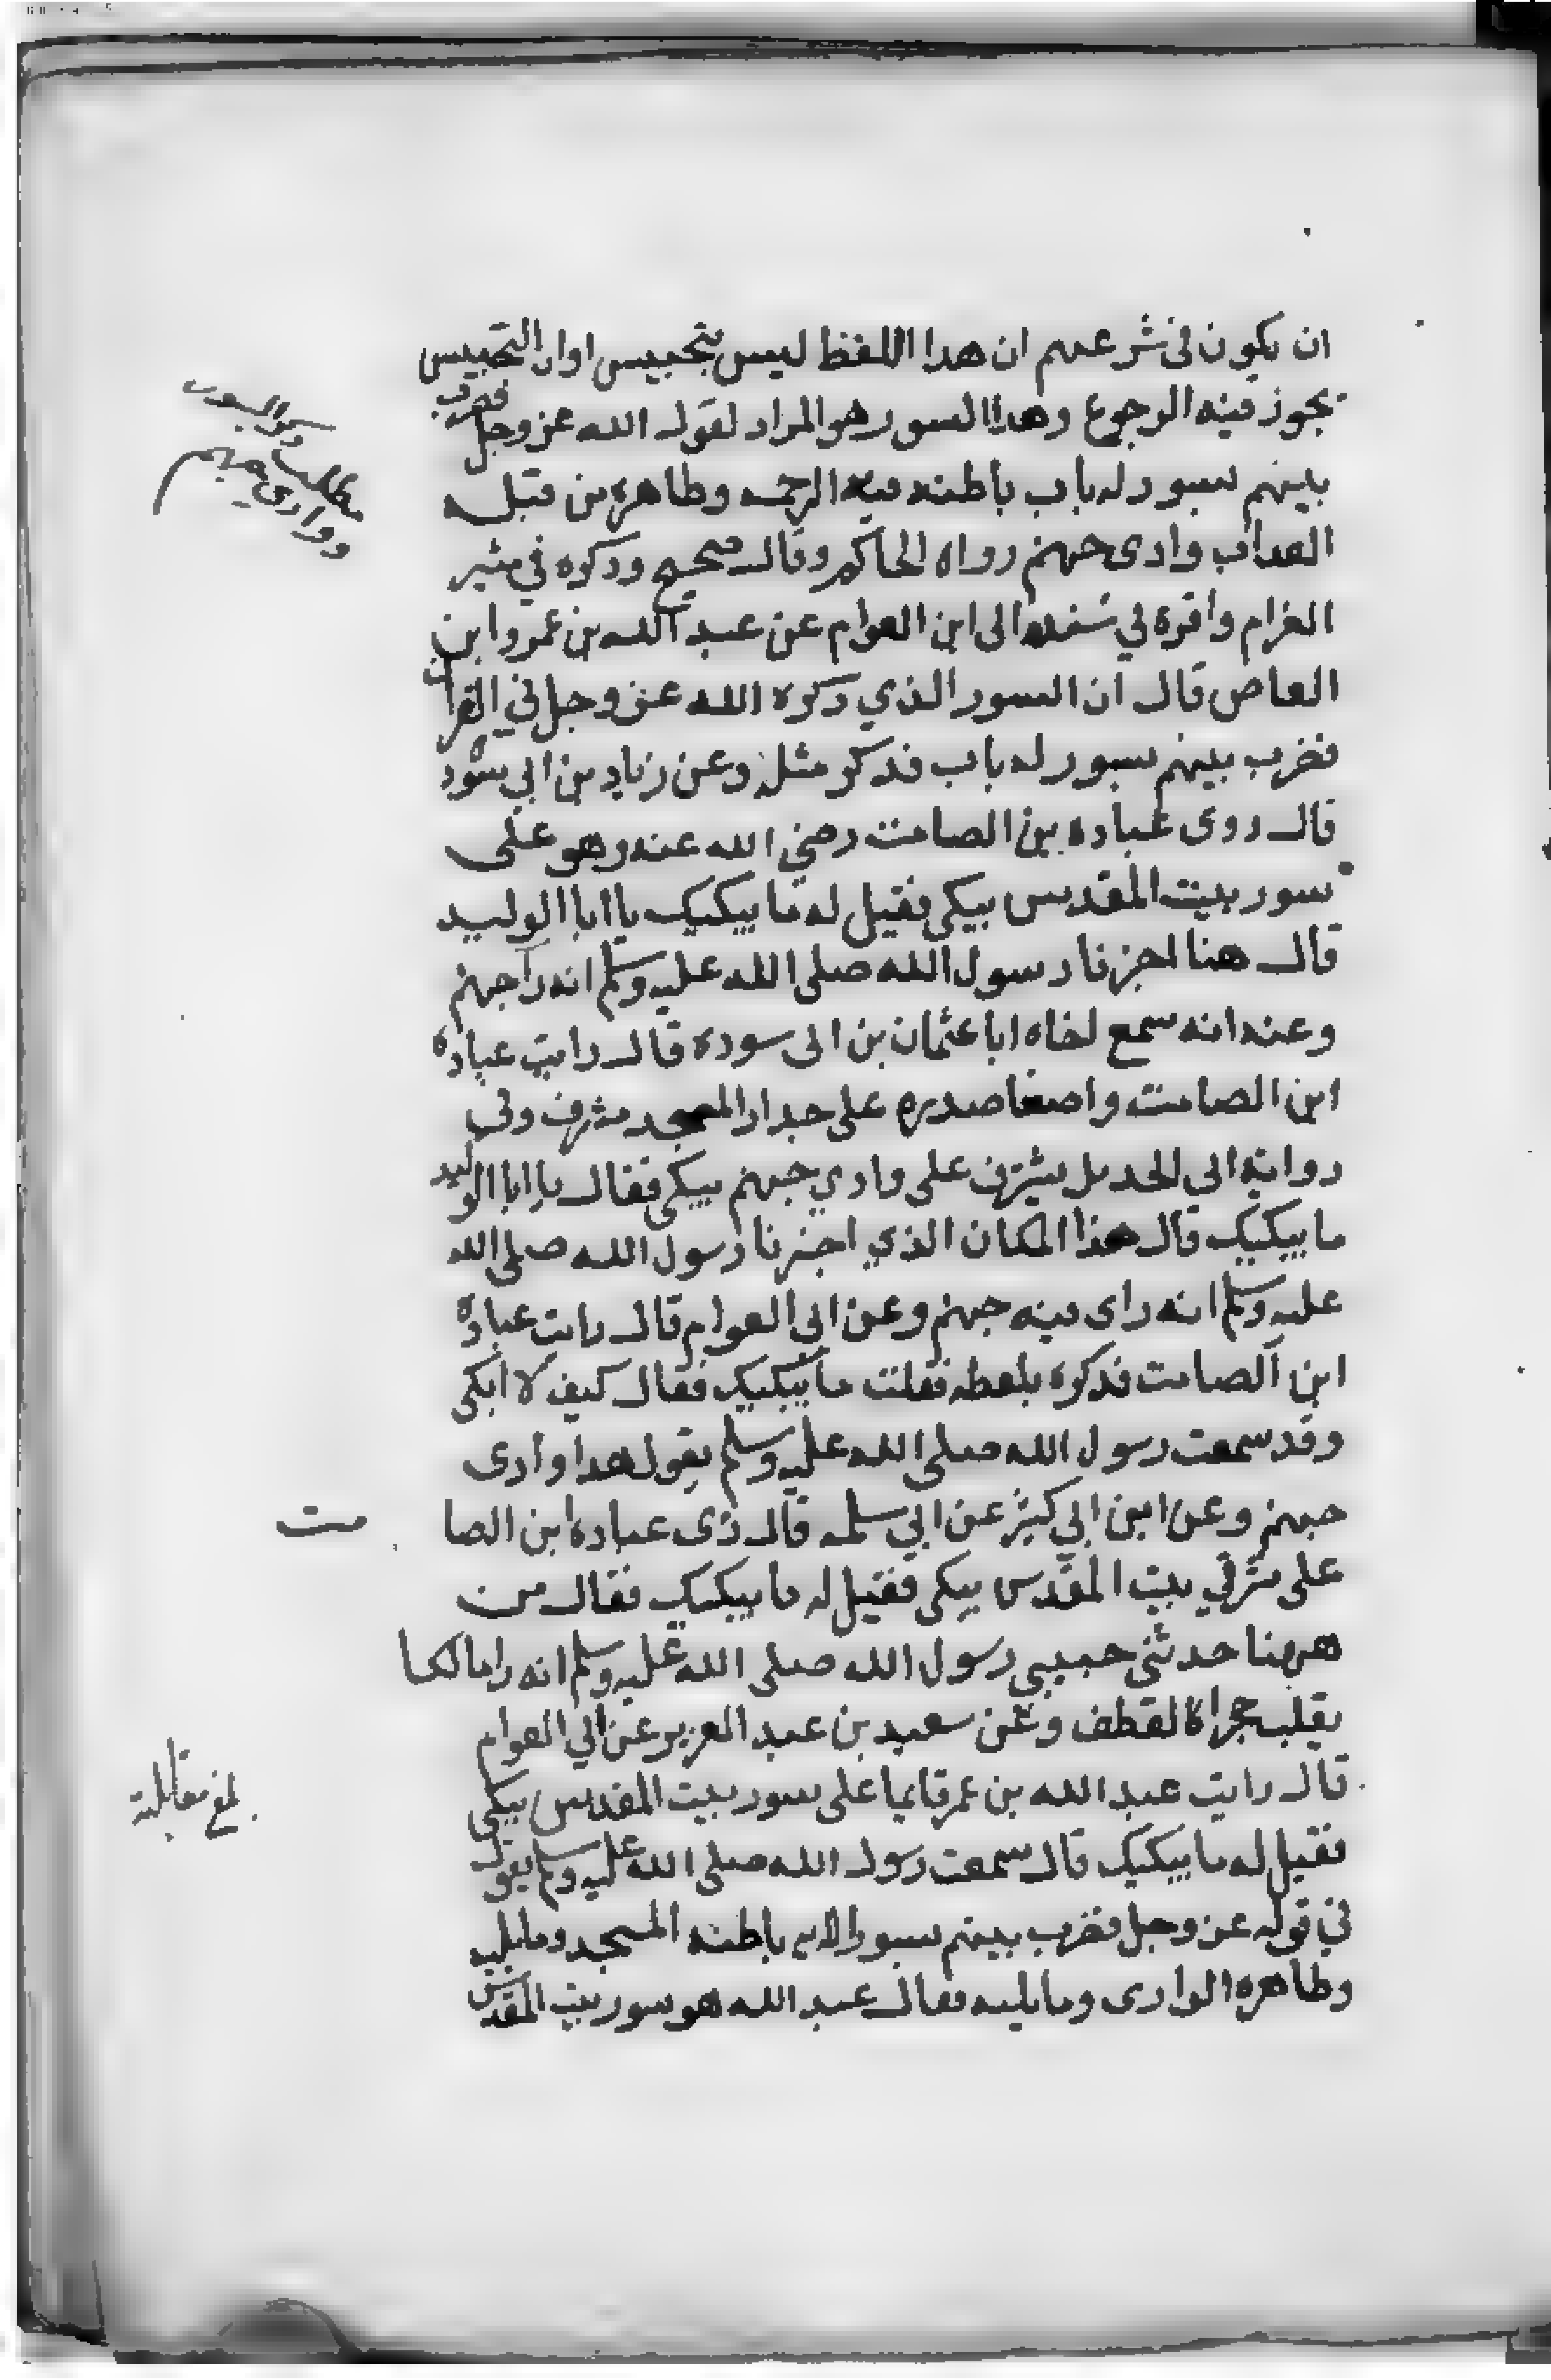 ان يكون في شرعهم ان هدا اللفظ ليس بتحبيس اوان التحبيس
يجوز فيه الرجوع وهدا السور هو المراد لقوله الله عز وجل فضرب
بينهم بسور له باب باطنه فيه الرحمه وظاهره من قبله
العداب وادى جهنم رواه الحاكم وقال صحيح وذكره في مثير
الغرام واقره في سنده الى ابن العوام عن عبد الله بن عمرو ابن
العاص قال ان السور الذي ذكره الله عز وجل في القران
فضرب بينهم بسور له باب فدكر مثله وعن زياد بن ابي سوده
قال روى عباده بن الصامت رضي الله عنه وهو على
سور بيت المقدس يبكى فقيل له ما يبكيك يا ابا الوليد
قال هنا اخبرنا رسول الله صلى الله عليه وسلم انه رآ جهنم
وعنه انه سمع اخاه ابا عثمان بن ابى سوده قال رايت عباده
ابن الصامت واضعا صدره على جدار المسجد مشرف وفي
رواية ابي الحديل يشرف على وادي جهنم يبكى فقال يا ابا الوليد
ما يبكيك قال هذا المكان الذي اخبرنا رسول الله صلى الله
عليه وسلم انه راى فيه جهنم وعن ابي العوام قال رايت عبادة
ابن الصامت فدكره بلفظه فقلت ما يبكيك فقال كيف لا ابكى
وقد سمعت رسول الله صلى الله عليه وسلم يقول هدا وادى
جهنم وعن ابن ابي كثير عن ابي سلمه قال رى عباده ابن الصا مت
على شرقي بيت المقدس يبكى فقيل له ما يبكيك فقال من
ههنا حدثني حبيبي رسول الله صلى الله عليه وسلم انه راى مالكا
يقلب جمرا كالقطف وعن سعيد بن عبد العزيز عن ابي العوام
قال رايت عبد الله بن عمر قايما على سور بيت المقدس يبكي
فقيل له ما يبكيك قال سمعت رسول الله صلى الله عليه وسلم يقول
في قوله عز وجل فضرب بينهم بسور باطنه المسجد وما يليه
وظاهره الوادى وما يليه فقال عبد الله هو سور بيت المقدس
مطلب السور
ووادي جهنم
بلغ مقابلة